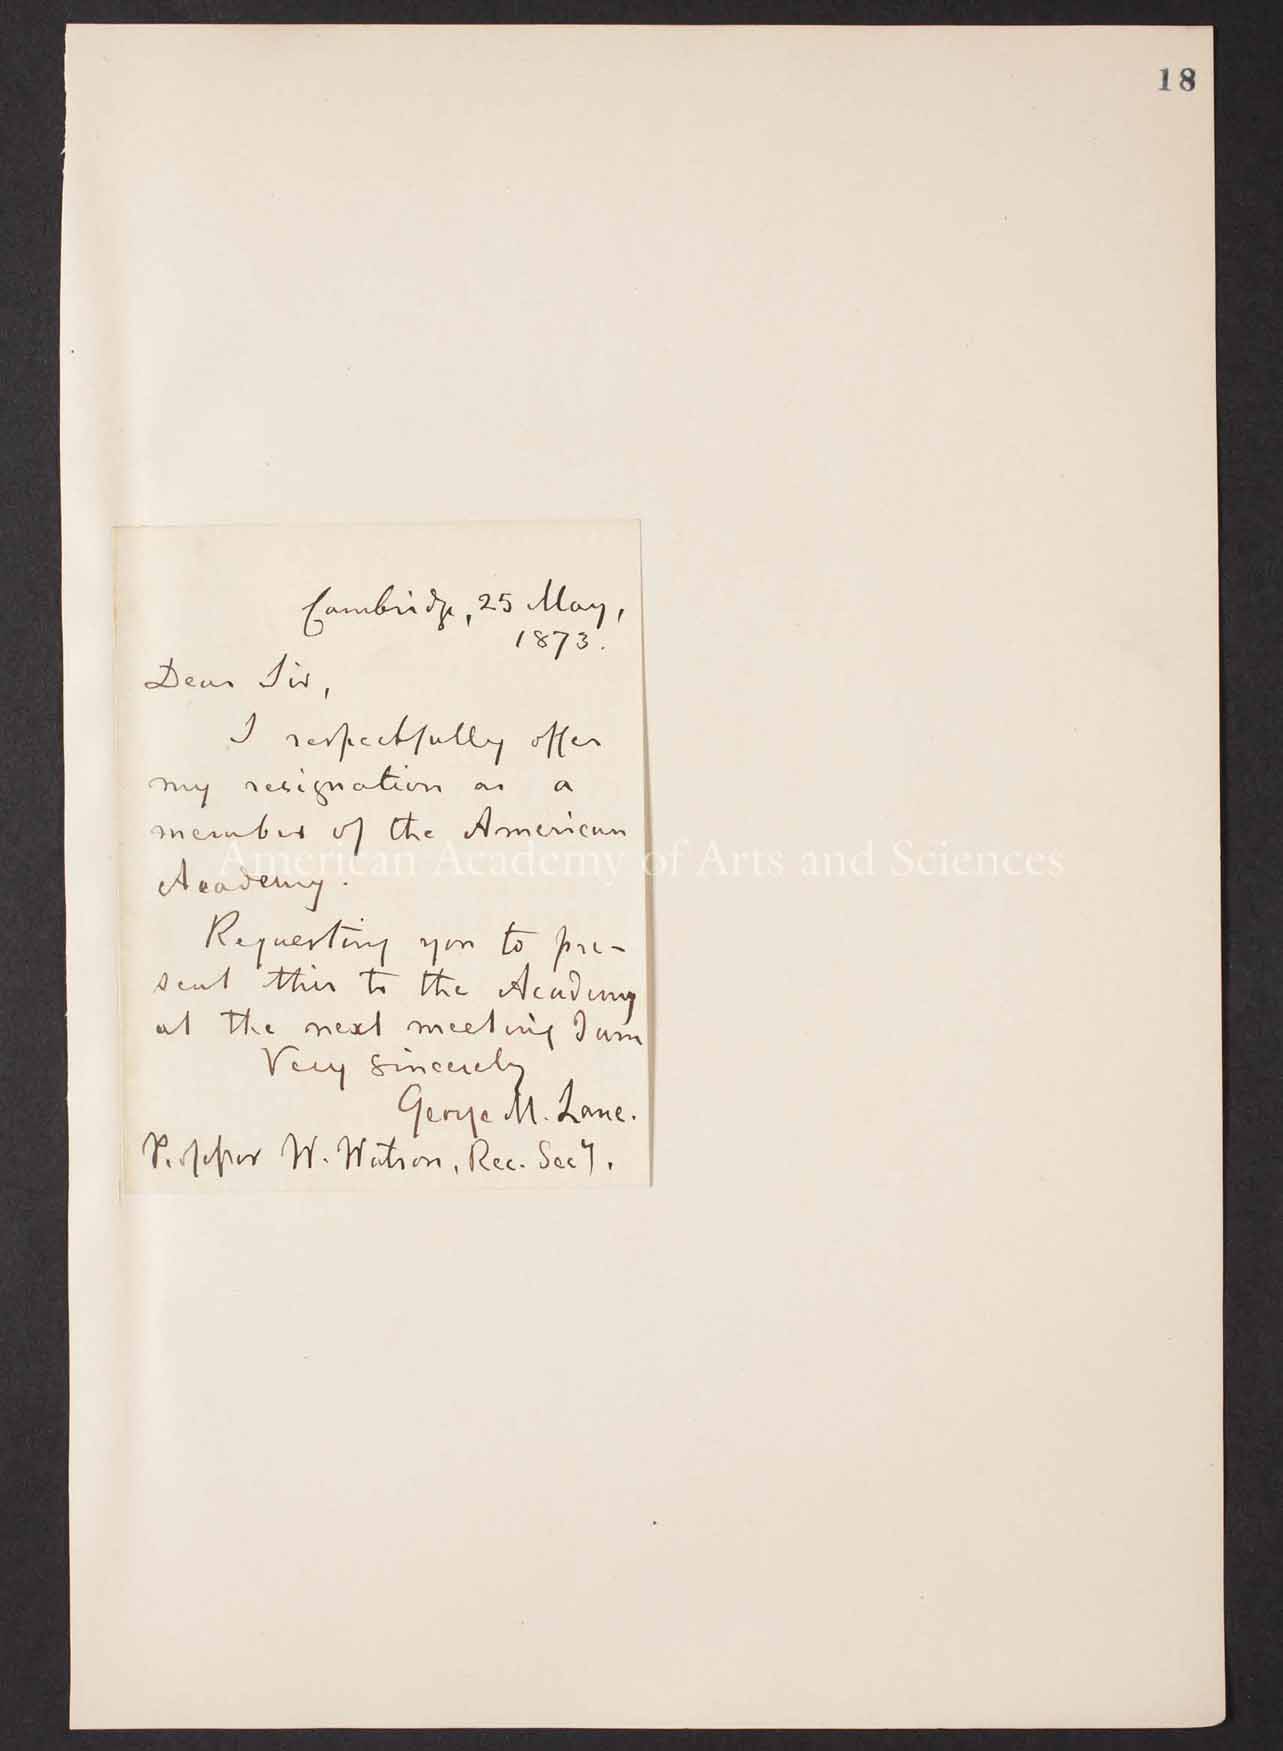 18
Cambridge, 25 May,
1873.
Dear Sir,
I respectfully offer
my resignation as a
member of the American
American Academy of Arts and Sciences
Academy.
Requesting you to pre-
sent this to the Academy
at the next meeting I am
Very sincerely
George M. Lane.
Professor W. Watson, Rec. Sec'y.